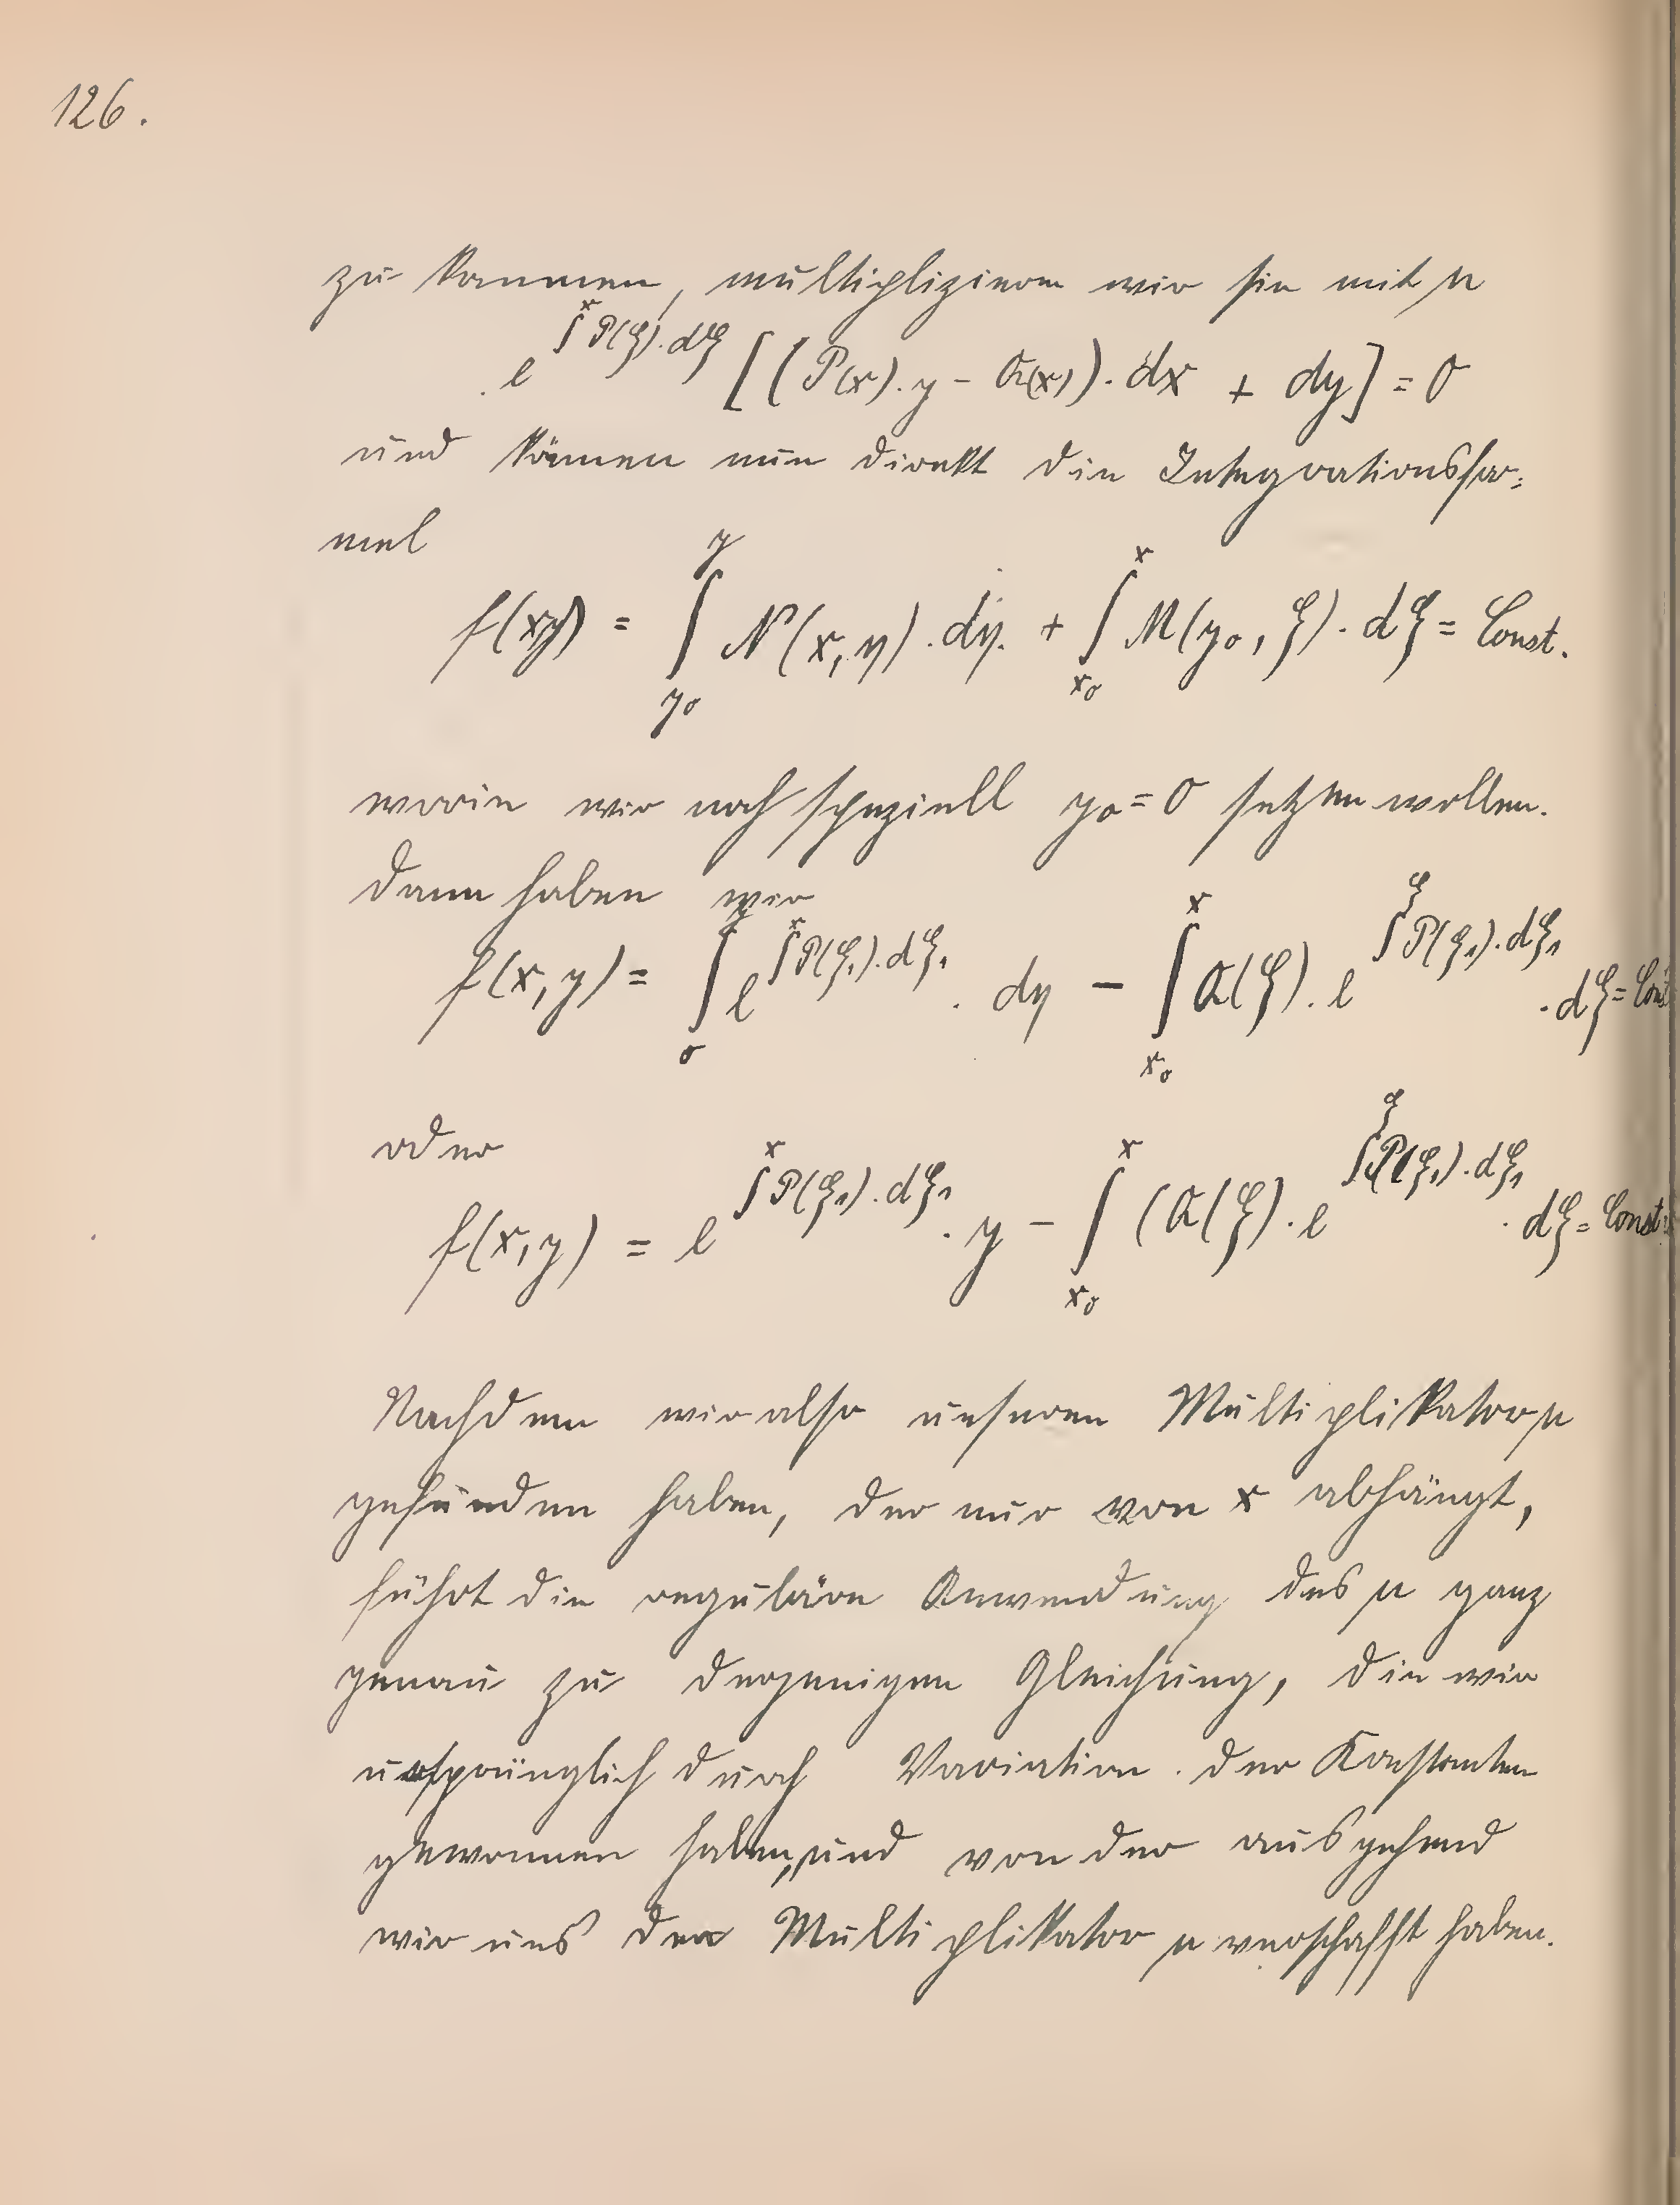 126.
zu kommen, multiplizieren wir sie mit μ
e^{∫^x P(ξ).dξ} [(P(x).y - Q(x)).dx + dy] = 0
und können nun direkt die Integrationsfor=
mel
f(xy) = ∫_{y₀}^{y} N(x,η).dη. + ∫_{x₀}^{x} M(y₀,ξ).dξ = Const.
worin wir noch speziell y₀=0 setzen wollen.
Dann haben wir
f(x,y) = ∫_0^y e^{∫^x P(ξ₁).dξ₁}. dη - ∫_{x₀}^x Q(ξ).e^{∫^ξ P(ξ₁).dξ₁}.dξ = Const
oder
f(x,y) = e^{∫^x P(ξ₁).dξ₁}.y - ∫_{x₀}^x (Q(ξ).e^{∫^ξ P(ξ₁).dξ₁}.dξ = Const.
Nachdem wir also unseren Multiplikator μ
gefunden haben, der nur von x abhängt,
führt die reguläre Anwendung des μ ganz
genau zu derjenigen Gleichung, die wir
ursprünglich durch Variation der Konstanten
gewonnen haben, und von der ausgehend
wir uns den Multiplikator μ verschafft haben.